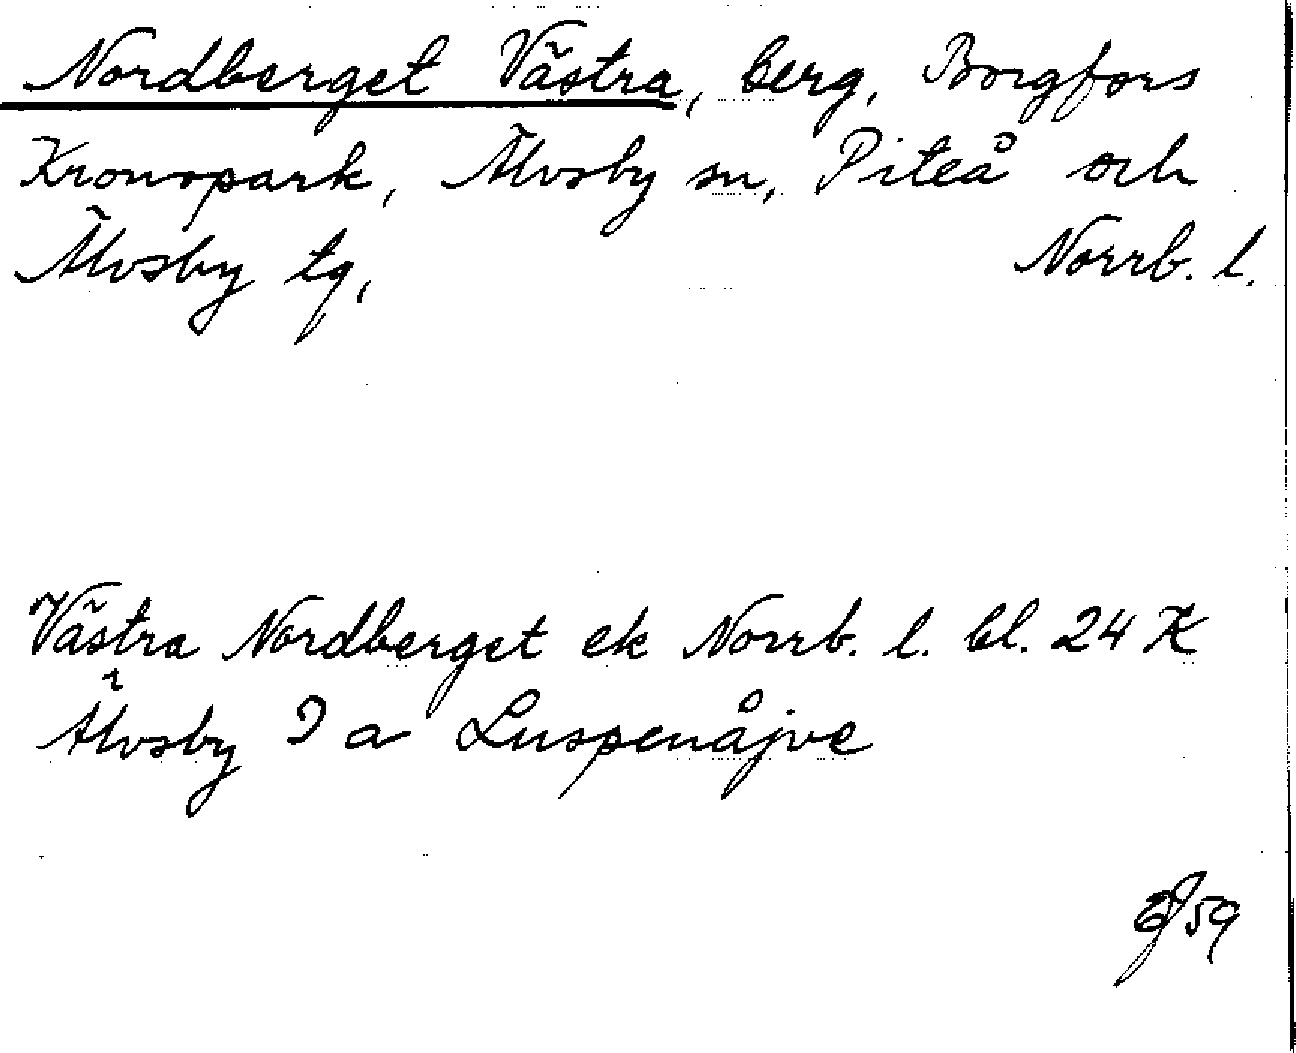 Nordberget Västra, berg, Borgfors
Kronopark, Älvsby sn, Piteå och
Älvsby tg,
Norrb. l.
Västra Nordberget ek Norrb. l. bl. 24 K
Älvsby I a Luspenåjve
59